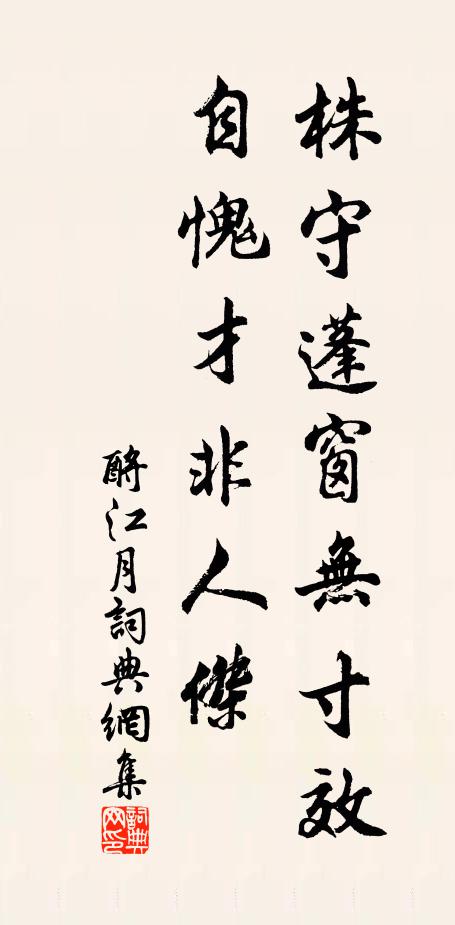 株守蓬窗無寸效
自愧才非人傑
酹江月詞典網集
詞典網印